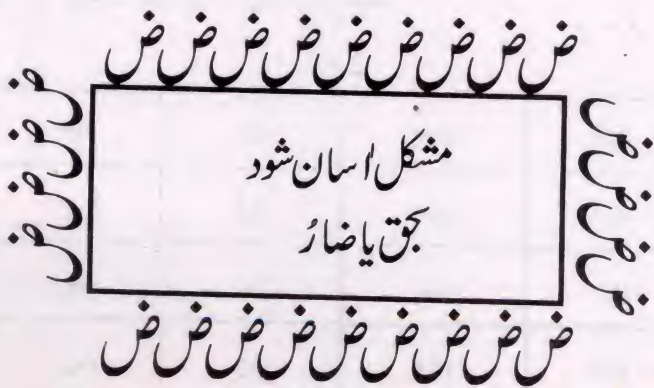 ض ض ض ض ض ض ض ض ض
ض ض ض ض
مشکل اسان شود
بحق یا ضارُ
ض ض ض ض
ض ض ض ض ض ض ض ض ض